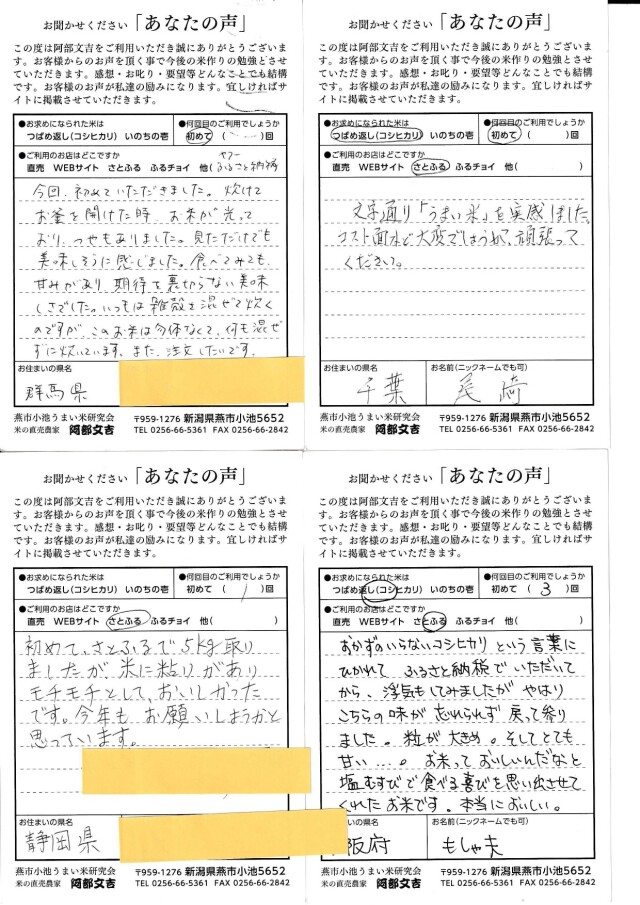 お聞かせください「あなたの声」
この度は阿部文吉をご利用いただき誠にありがとうございま
す。お客様からのお声を頂く事で今後の米作りの勉強とさせ
ていただきます。感想・お叱り・要望等どんなことでも結構
です。お客様のお声が私達の励みになります。宜しければサ
イトに掲載させていただきます。
●お求めになられた米は
つばめ返し(コシヒカリ) いのちの壱
●何回目のご利用でしょうか
初めて ( )回
●ご利用のお店はどこですか
直売 WEBサイト さとふる ふるチョイ 他( ヤフーふるさと納税
今回、初めていただきました。炊けて
お釜を開けた時、お米が光って
おり、つやもありました。見ただけでも
美味しそうに感じました。食べてみても、
甘みがあり、期待を裏切らない美味
しさでした。いつもは雑穀を混ぜて炊く
のですが、このお米は勿体なくて、何も混ぜ
ずに炊いています。また、注文したいです。
お住まいの県名
群馬県
燕市小池うまい米研究会
米の直売農家 阿部文吉
〒959-1276 新潟県燕市小池5652
TEL 0256-66-5361 FAX 0256-66-2842
お聞かせください「あなたの声」
この度は阿部文吉をご利用いただき誠にありがとうございま
す。お客様からのお声を頂く事で今後の米作りの勉強とさせ
ていただきます。感想・お叱り・要望等どんなことでも結構
です。お客様のお声が私達の励みになります。宜しければサ
イトに掲載させていただきます。
●お求めになられた米は
つばめ返し(コシヒカリ) いのちの壱
●何回目のご利用でしょうか
初めて ( )回
●ご利用のお店はどこですか
直売 WEBサイト さとふる ふるチョイ 他( )
文字通り「うまい米」を実感しました。
コスト面など大変でしょうが、頑張って
ください。
お住まいの県名
千葉
お名前(ニックネームでも可)
尾崎
燕市小池うまい米研究会
米の直売農家 阿部文吉
〒959-1276 新潟県燕市小池5652
TEL 0256-66-5361 FAX 0256-66-2842
お聞かせください「あなたの声」
この度は阿部文吉をご利用いただき誠にありがとうございま
す。お客様からのお声を頂く事で今後の米作りの勉強とさせ
ていただきます。感想・お叱り・要望等どんなことでも結構
です。お客様のお声が私達の励みになります。宜しければサ
イトに掲載させていただきます。
●お求めになられた米は
つばめ返し(コシヒカリ) いのちの壱
●何回目のご利用でしょうか
初めて ( 1 )回
●ご利用のお店はどこですか
直売 WEBサイト さとふる ふるチョイ 他( )
初めて、さとふるで5kg取り
ましたが、米に粘りがあり
モチモチとして、おいしかった
です。今年も お願いしようかと
思っています。
お住まいの県名
静岡県
燕市小池うまい米研究会
米の直売農家 阿部文吉
〒959-1276 新潟県燕市小池5652
TEL 0256-66-5361 FAX 0256-66-2842
お聞かせください「あなたの声」
この度は阿部文吉をご利用いただき誠にありがとうございま
す。お客様からのお声を頂く事で今後の米作りの勉強とさせ
ていただきます。感想・お叱り・要望等どんなことでも結構
です。お客様のお声が私達の励みになります。宜しければサ
イトに掲載させていただきます。
●お求めになられた米は
つばめ返し(コシヒカリ) いのちの壱
●何回目のご利用でしょうか
初めて ( 3 )回
●ご利用のお店はどこですか
直売 WEBサイト さとふる ふるチョイ 他( )
おかずのいらないコシヒカリ という言葉に
ひかれて ふるさと納税で いただいて
から、浮気もしてみましたが やはり
こちらの味が 忘れられず 戻って参り
ました。粒が大きめ。そしてとても
甘い…。お米っておいしいんだなと
塩むすびで食べる喜びを思い出させて
くれたお米です。本当においしい。
お住まいの県名
阪府
お名前(ニックネームでも可)
もしゃ夫
燕市小池うまい米研究会
米の直売農家 阿部文吉
〒959-1276 新潟県燕市小池5652
TEL 0256-66-5361 FAX 0256-66-2842